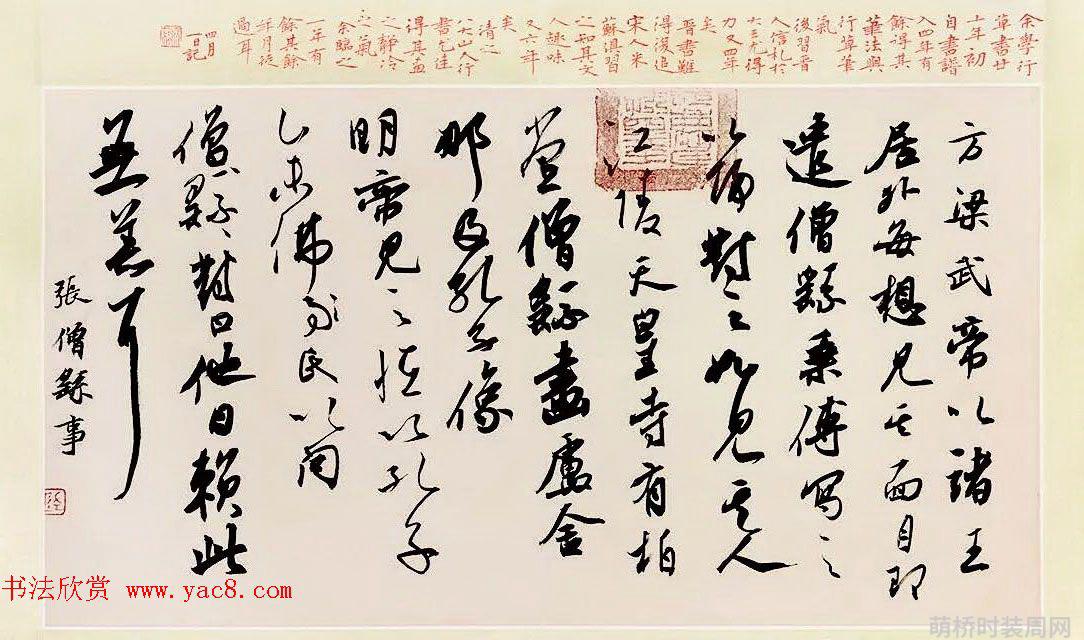 余學行
草書廿
十年初
自書譜
入四年有
餘得其
筆法與
行草筆
氣
後習晉
人信札於
大王尤得
力又四年
矣
晉書難
得復追
宋人米
蘇俱習
之知其文
人趣味
又六年
矣
清之
八大山人行
書气佳
得其
之靜冷
之氣
余臨之
一年有
餘其餘
年月從
過耳
四月
一日記
方梁武帝以諸王
居外每想見其面目即
遣僧繇乘傳寫之
以歸對之如見其人
江陵天皇寺有柏
堂僧繇畫盧舍
那及孔子像
明帝見之怪以孔子
佛氏以問
僧繇對曰他日賴此
無恙耳
張僧繇事
书法欣赏 www.yac8.com
萌桥时装周网